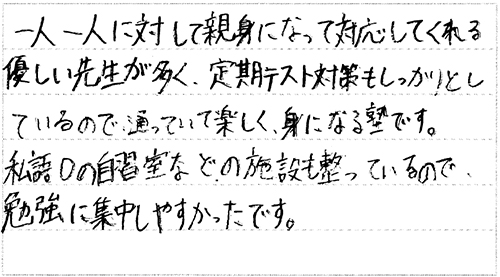 一人一人に対して親身になって対応してくれる
優しい先生が多く、定期テスト対策もしっかりとし
ているので、通っていて楽しく、身になる塾です。
私語0の自習室などの施設も整っているので、
勉強に集中しやすかったです。